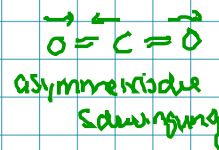 O = C = O
asymmetrische
Schwingung